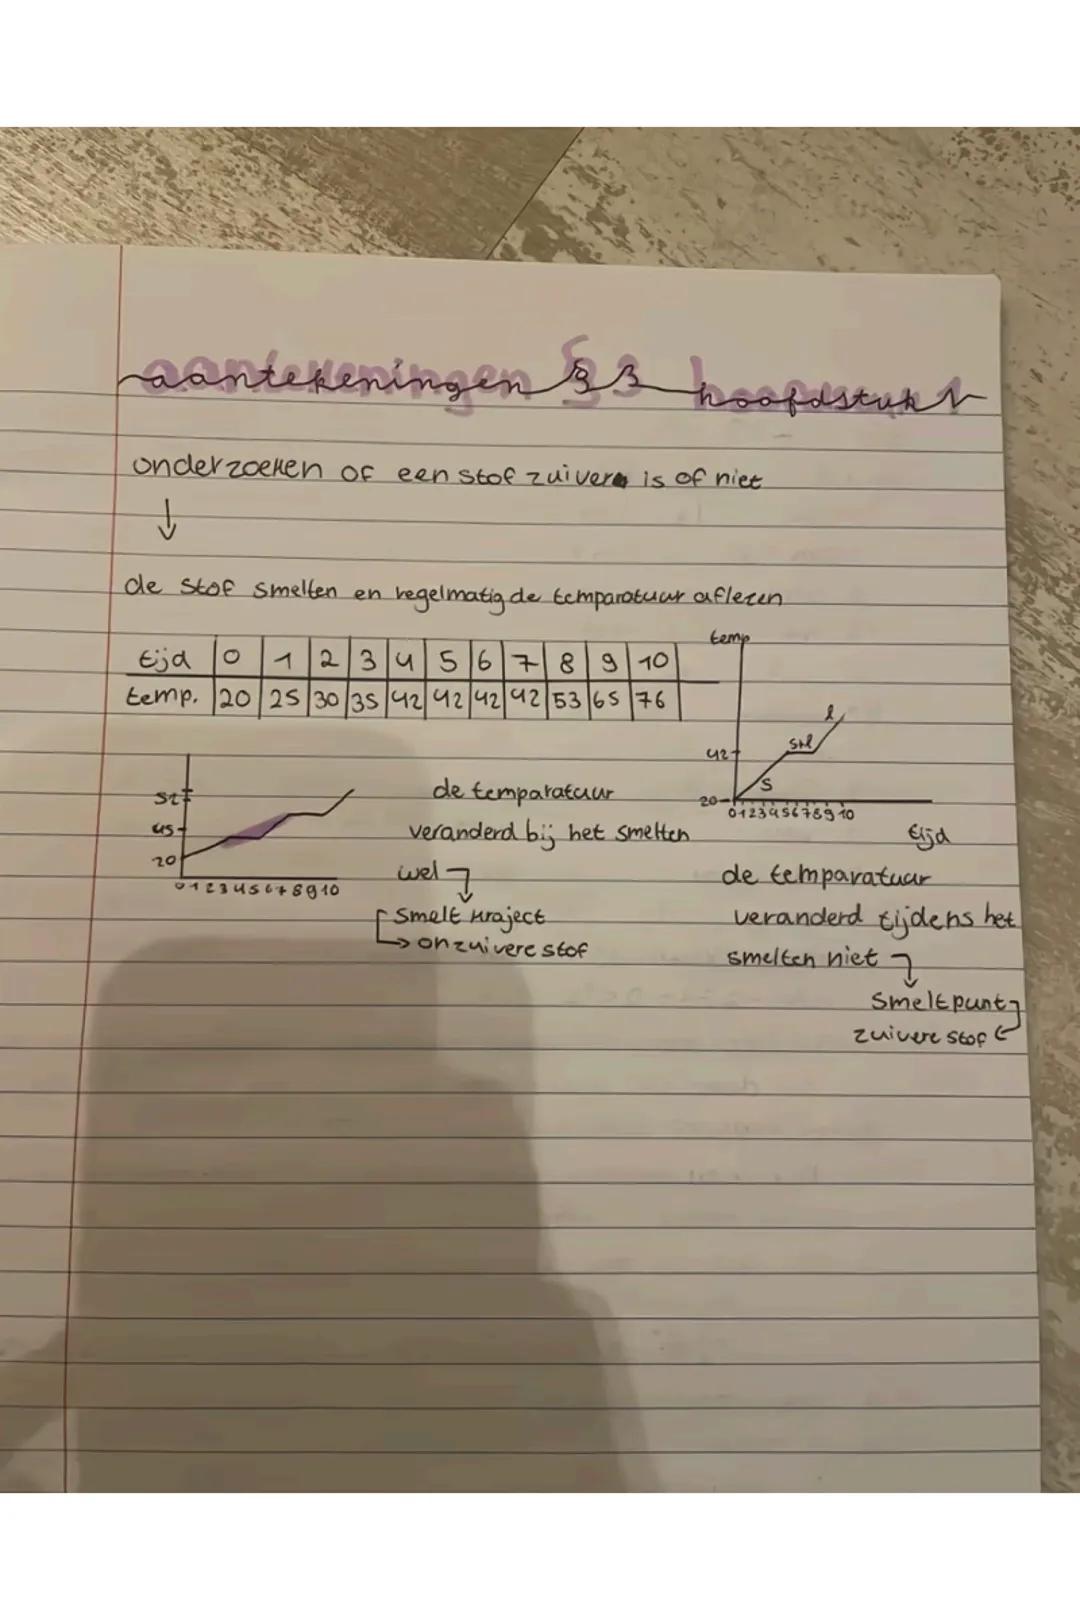 aantekeningen § 3 hoofdstuk 1
onderzoeken of een stof zuiver is of niet
↓
de stof smelten en regelmatig de temparatuur aflezen
tijd 0 1 2 3 4 5 6 7 8 9 10
temp. 20 25 30 35 42 42 42 42 53 65 76
temp
42
20
s
s+l
l
0 1 2 3 4 5 6 7 8 9 10
tijd
52
45
20
0 1 2 3 4 5 6 7 8 9 10
de temparatuur
veranderd bij het smelten
wel
smelt kraject
→ onzuivere stof
de temparatuur
veranderd tijdens het
smelten niet
smeltpunt
zuivere stof